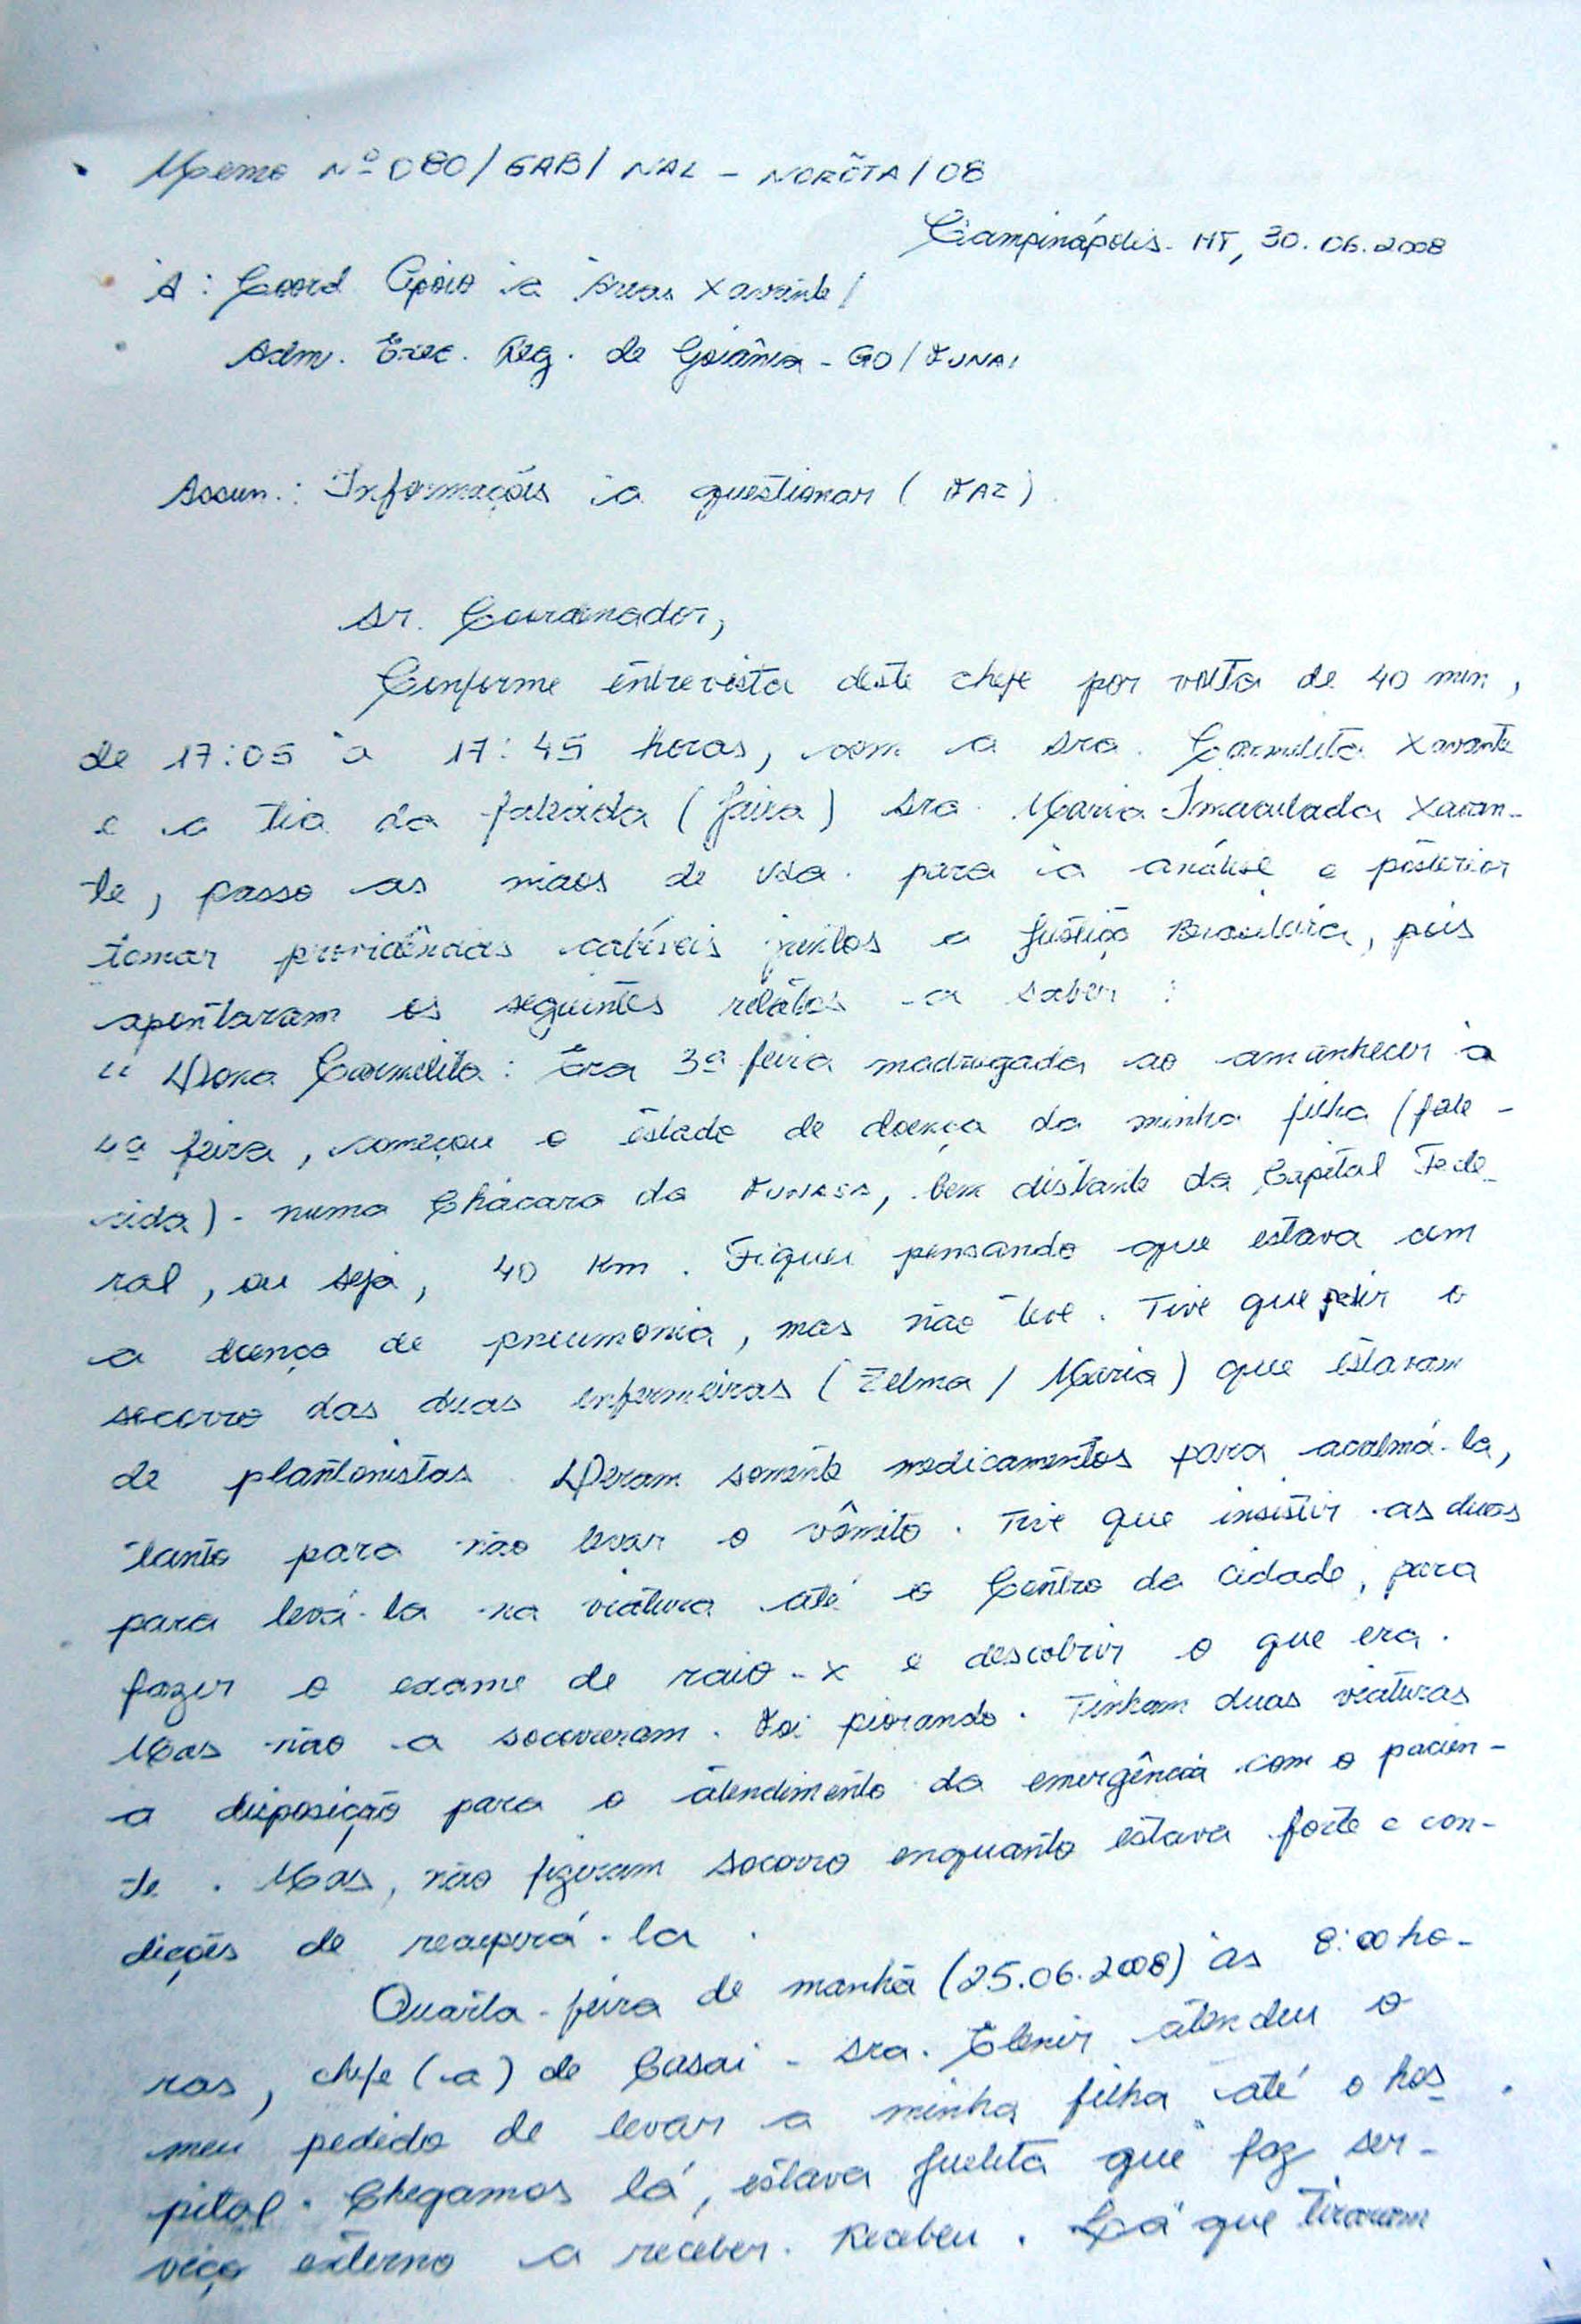 Memo Nº 080/GAB/ NAL - NORÕTA/08
Campinápolis-MT, 30.06.2008
À: Coord Apoio à Áreas Xavante/
Adm. Exec. Reg. de Goiânia - GO/FUNAI
Assun.: Informações à questionar (FAZ).
Sr. Coordenador,
Conforme entrevista deste chefe por volta de 40 min,
de 17:05 à 17:45 horas, com a sra. Carmelita Xavante
e a tia da falecida (faixa) sra. Maria Imaculada Xavan-
te, passo as mãos de Vsa. para à análise e posterior
tomar providências cabíveis juntos a Justiça Brasileira, pois
apontaram os seguintes relatos - a saber:
" Dona Carmelita: Era 3ª feira madrugada ao amanhecer à
4ª feira, começou o estado de doença da minha filha (fale-
cida) - numa Chácara da FUNASA, bem distante da Capital Fede-
ral, ou seja, 40 Km. Fiquei pensando que estava am
a doença de pneumonia, mas não teve. Tive que pedir o
socorro das duas enfermeiras (Zelma / Maria) que estavam
de plantonistas. Deram somente medicamentos para acalmá-la,
tanto para não levar o vômito. Tive que insistir as duas
para levá-la na viatura até o Centro da cidade, para
fazer o exame de raio-x e descobrir o que era.
Mas não a socorreram. Foi piorando. Tinham duas viaturas
a disposição para o atendimento da emergência com o pacien-
te. Mas, não fizeram socorro enquanto estava forte e con-
dições de recuperá-la.
Quarta-feira de manhã (25.06.2008) às 8:00 ho-
ras, chefe (a) de Casai - sra. Elenir atendeu o
meu pedido de levar a minha filha até o hos
pital. Chegamos lá, estava Julieta que faz ser-
viço externo a receber. Recebeu. Lá que tiraram